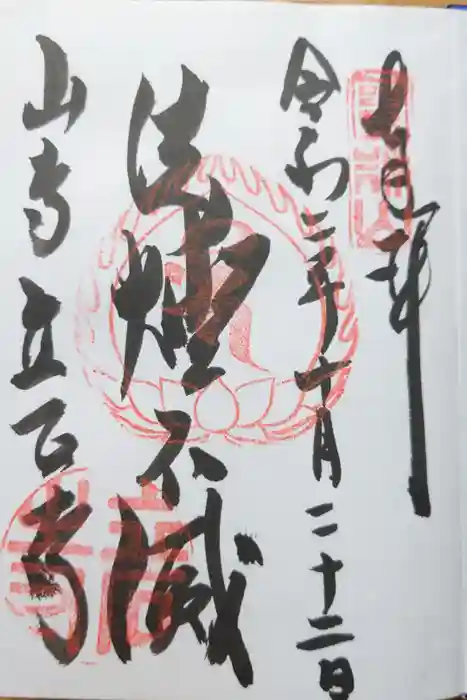 奉拝
令和二年十月二十二日
法燈不滅
山寺立石寺